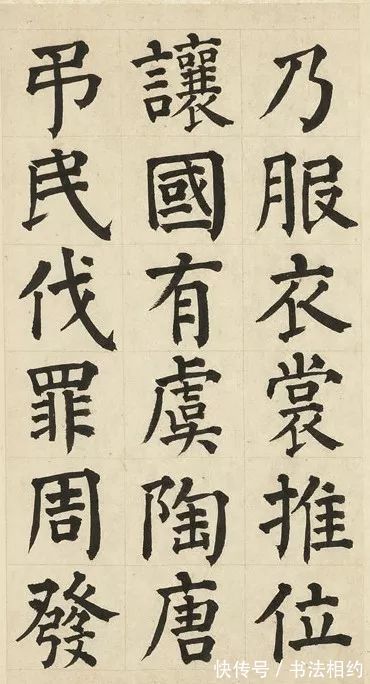 乃服衣裳推位
讓國有虞陶唐
弔民伐罪周發
快传号／书法相约